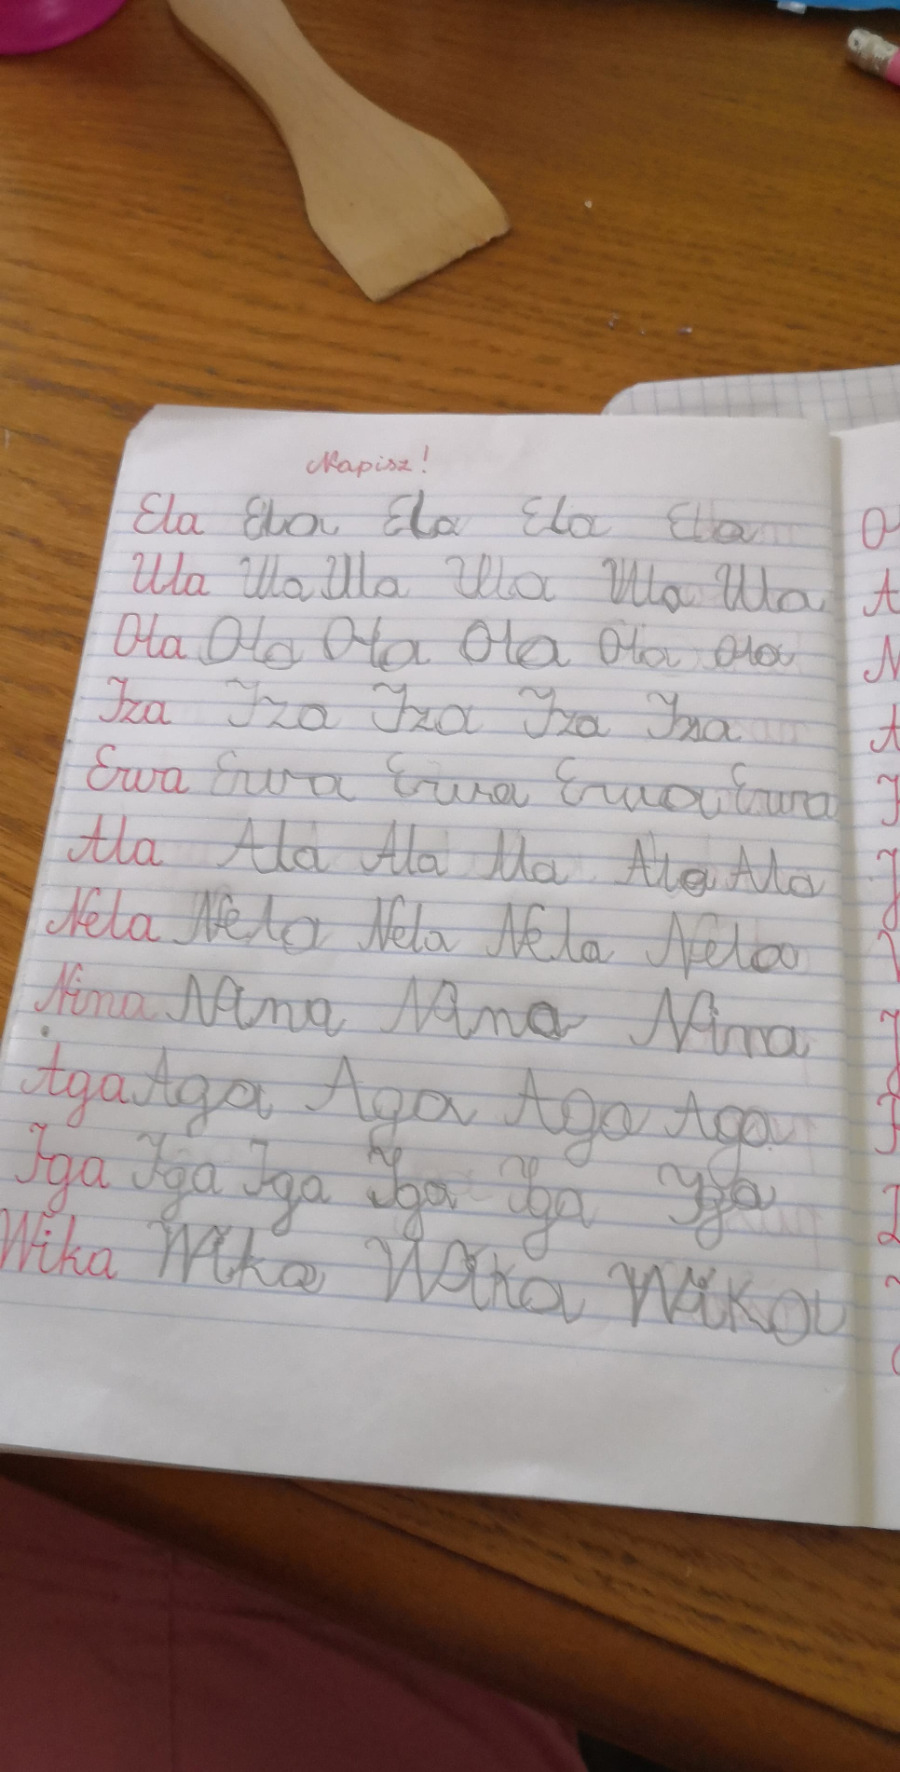 Napisz!
Ela Ela Ela Ela Ela
Ula Ula Ula Ula Ula Ula
Ola Ola Ola Ola Ola Ola
Iza Iza Iza Iza Iza
Ewa Ewa Ewa Ewa Ewa
Ala Ala Ala Ala Ala Ala
Nela Nela Nela Nela Nela
Nina Nina Nina Nina
Aga Aga Aga Aga Aga
Iga Iga Iga Iga Iga Iga
Wika Wika Wika Wika